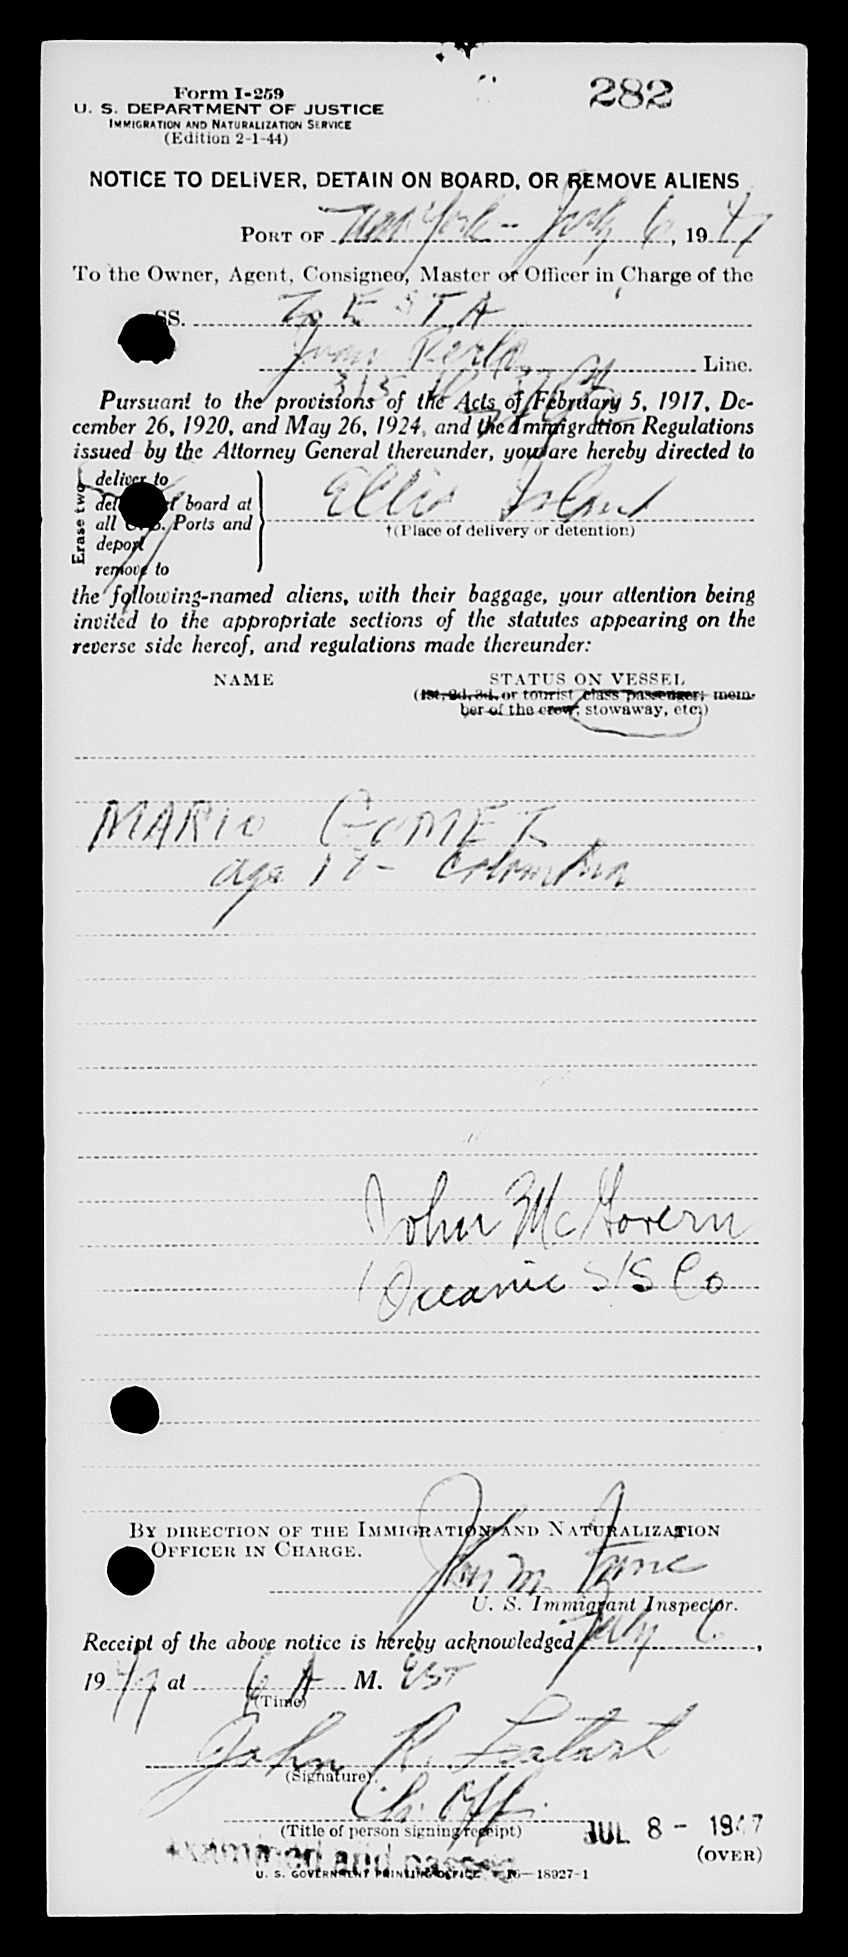 282
Form I-259
U. S. DEPARTMENT OF JUSTICE
IMMIGRATION AND NATURALIZATION SERVICE
(Edition 2-1-44)
NOTICE TO DELIVER, DETAIN ON BOARD, OR REMOVE ALIENS
PORT OF New York - July 6, 1947
To the Owner, Agent, Consignee, Master or Officer in Charge of the
SS. ZESTA
Juan
Line.
315
Pursuant to the provisions of the Acts of February 5, 1917, De-
cember 26, 1920, and May 26, 1924, and the Immigration Regulations
issued by the Attorney General thereunder, you are hereby directed to
Erase two
deliver to
board at
all U. S. Ports and
deport
remove to
Ellis Island
†(Place of delivery or detention)
the following-named aliens, with their baggage, your attention being
invited to the appropriate sections of the statutes appearing on the
reverse side hereof, and regulations made thereunder:
NAME STATUS ON VESSEL
(1st, 2d, 3d, or tourist class passenger; mem-
ber of the crew; stowaway, etc.)
MARIO GOMEZ
age 17 - Colombia
John McGovern
Oceanic S/S Co
BY DIRECTION OF THE IMMIGRATION AND NATURALIZATION
OFFICER IN CHARGE.
John M.
U. S. Immigrant Inspector.
Receipt of the above notice is hereby acknowledged July 6,
1947 at 6 A M. EST
(Time)
John R.
(Signature)
Ch. Off.
(Title of person signing receipt)
JUL 8 - 1947
(OVER)
Examined and passed
U. S. GOVERNMENT PRINTING OFFICE 16—18927-1